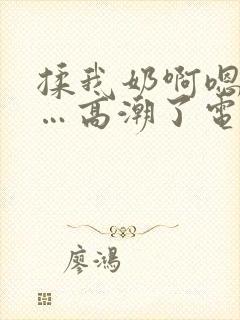 揉我奶啊嗯
…高潮了电
廖鸿